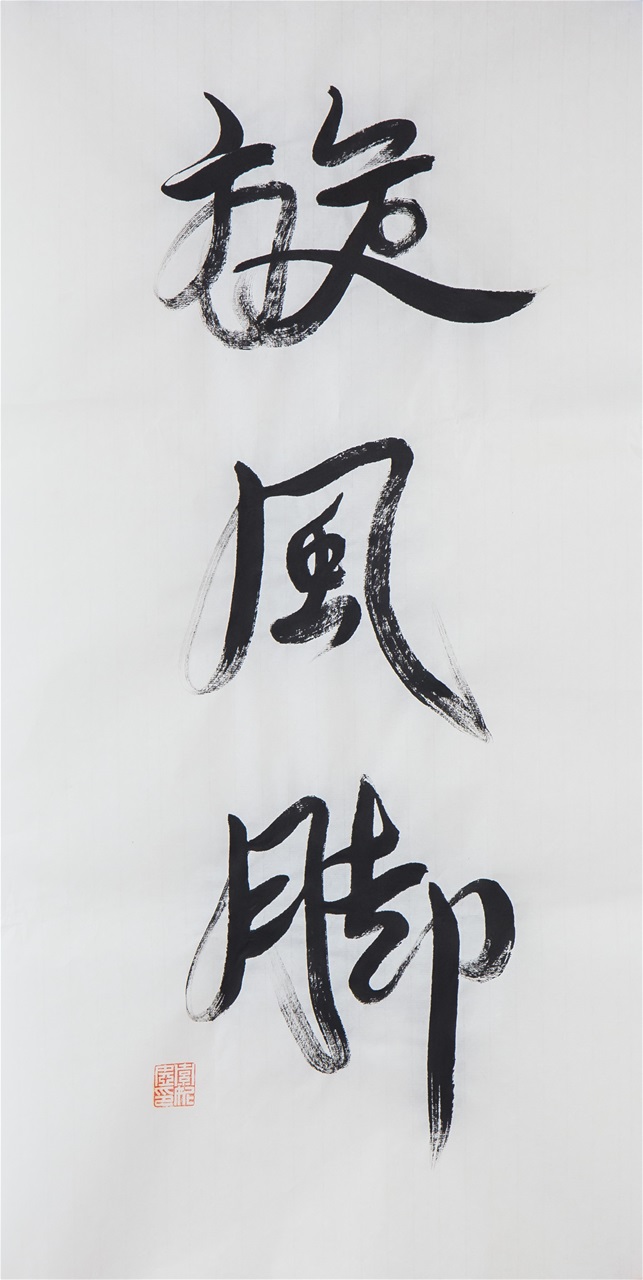 旋風脚